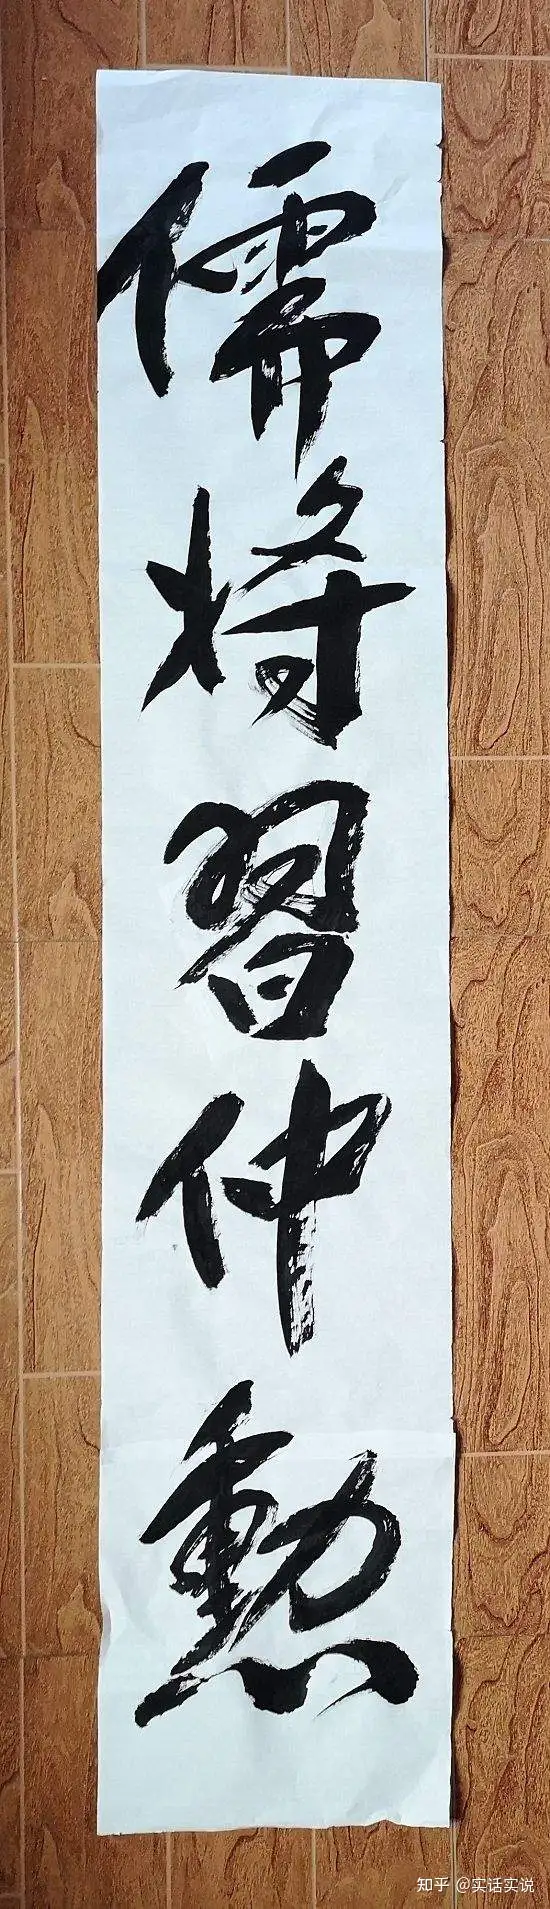 儒将習仲勲
知乎 @实话实说